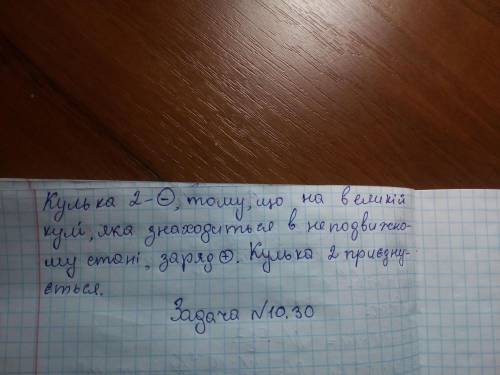 Кулька 2-⊖, тому, що на великій
кулі, яка знаходиться в неподвижно-
му стані, заряд ⊕. Кулька 2 приєдну-
ється.
Задача №10.30